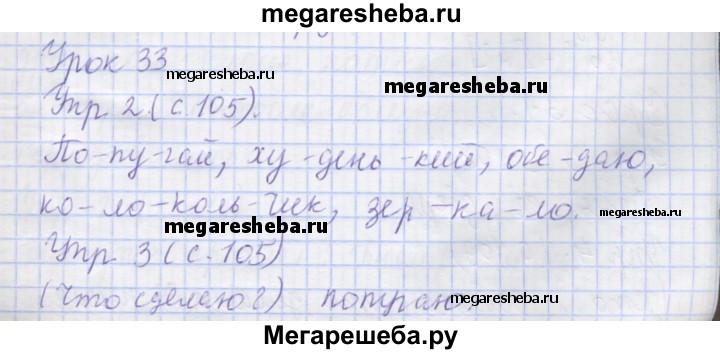 megaresheba.ru
Урок 33
megaresheba.ru
megaresheba.ru
Упр 2 (с. 105).
По-пу-гай, ху-день-кий, обе-даю,
ко-ло-коль-чик, зер-ка-ло.
megaresheba.ru
megaresheba.ru
Упр. 3 (с. 105)
(Что сделаю?) потраю.
megaresheba.ru
Мегарешеба.ру